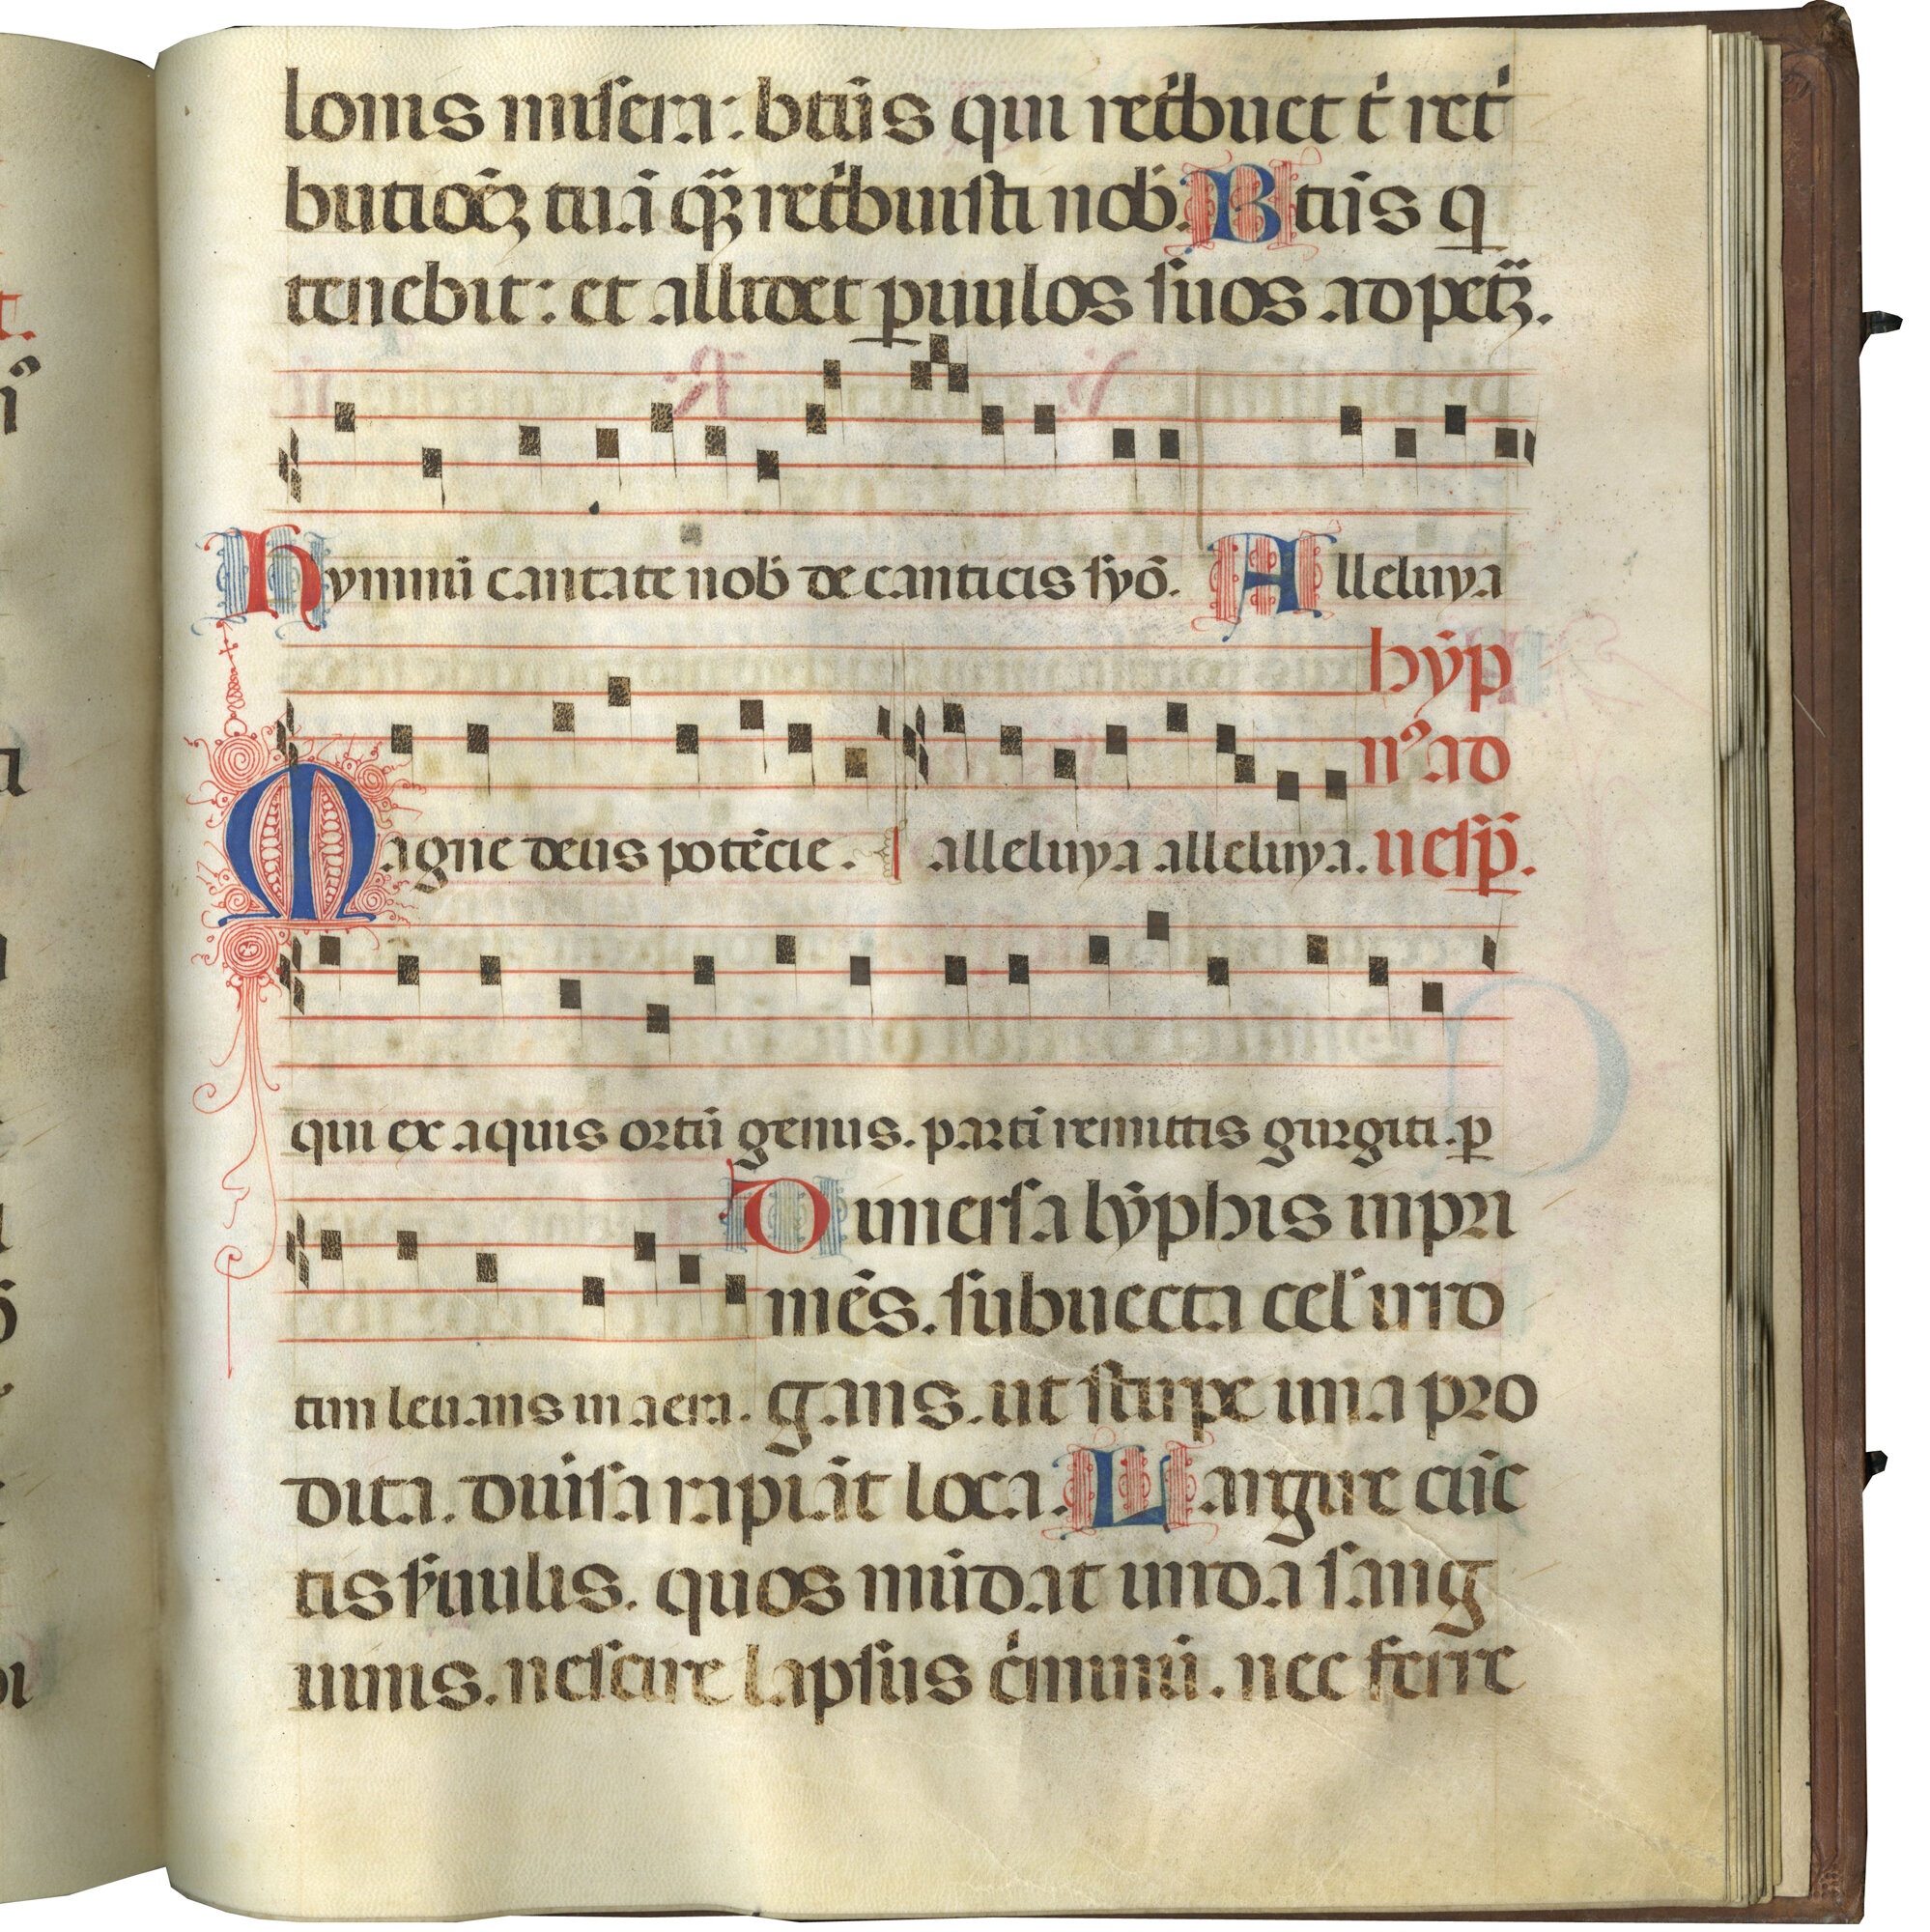 lonis misera: btũs qui ret̍buet t̍ ret̍
butiõꝫ tuã q̃ꝫ ret̍buisti nob̍. Btũs q̲
tenebit: et allidet ꝑuulos suos ad pet̃ꝫ.
Hymnũ cantate nob̍ de canticis syõ. Alleluya
hỹp
n᷒ ad
Magne deus potẽcie. alleluya alleluya. uesp̃.
qui ex aquis ortũ genus. partĩ remittis gurgiti. ꝑ
Dimersa lỹphis inpri
mẽs. subuecta cel̍ irro
tim leuans in aera. gans. ut stirpe una pro
dita. diuisa rapiãt loca. Largire cũc
tis fãulis. quos mũdat unda sang
uinis. nescire lapsus c̍iminũ. nec ferre